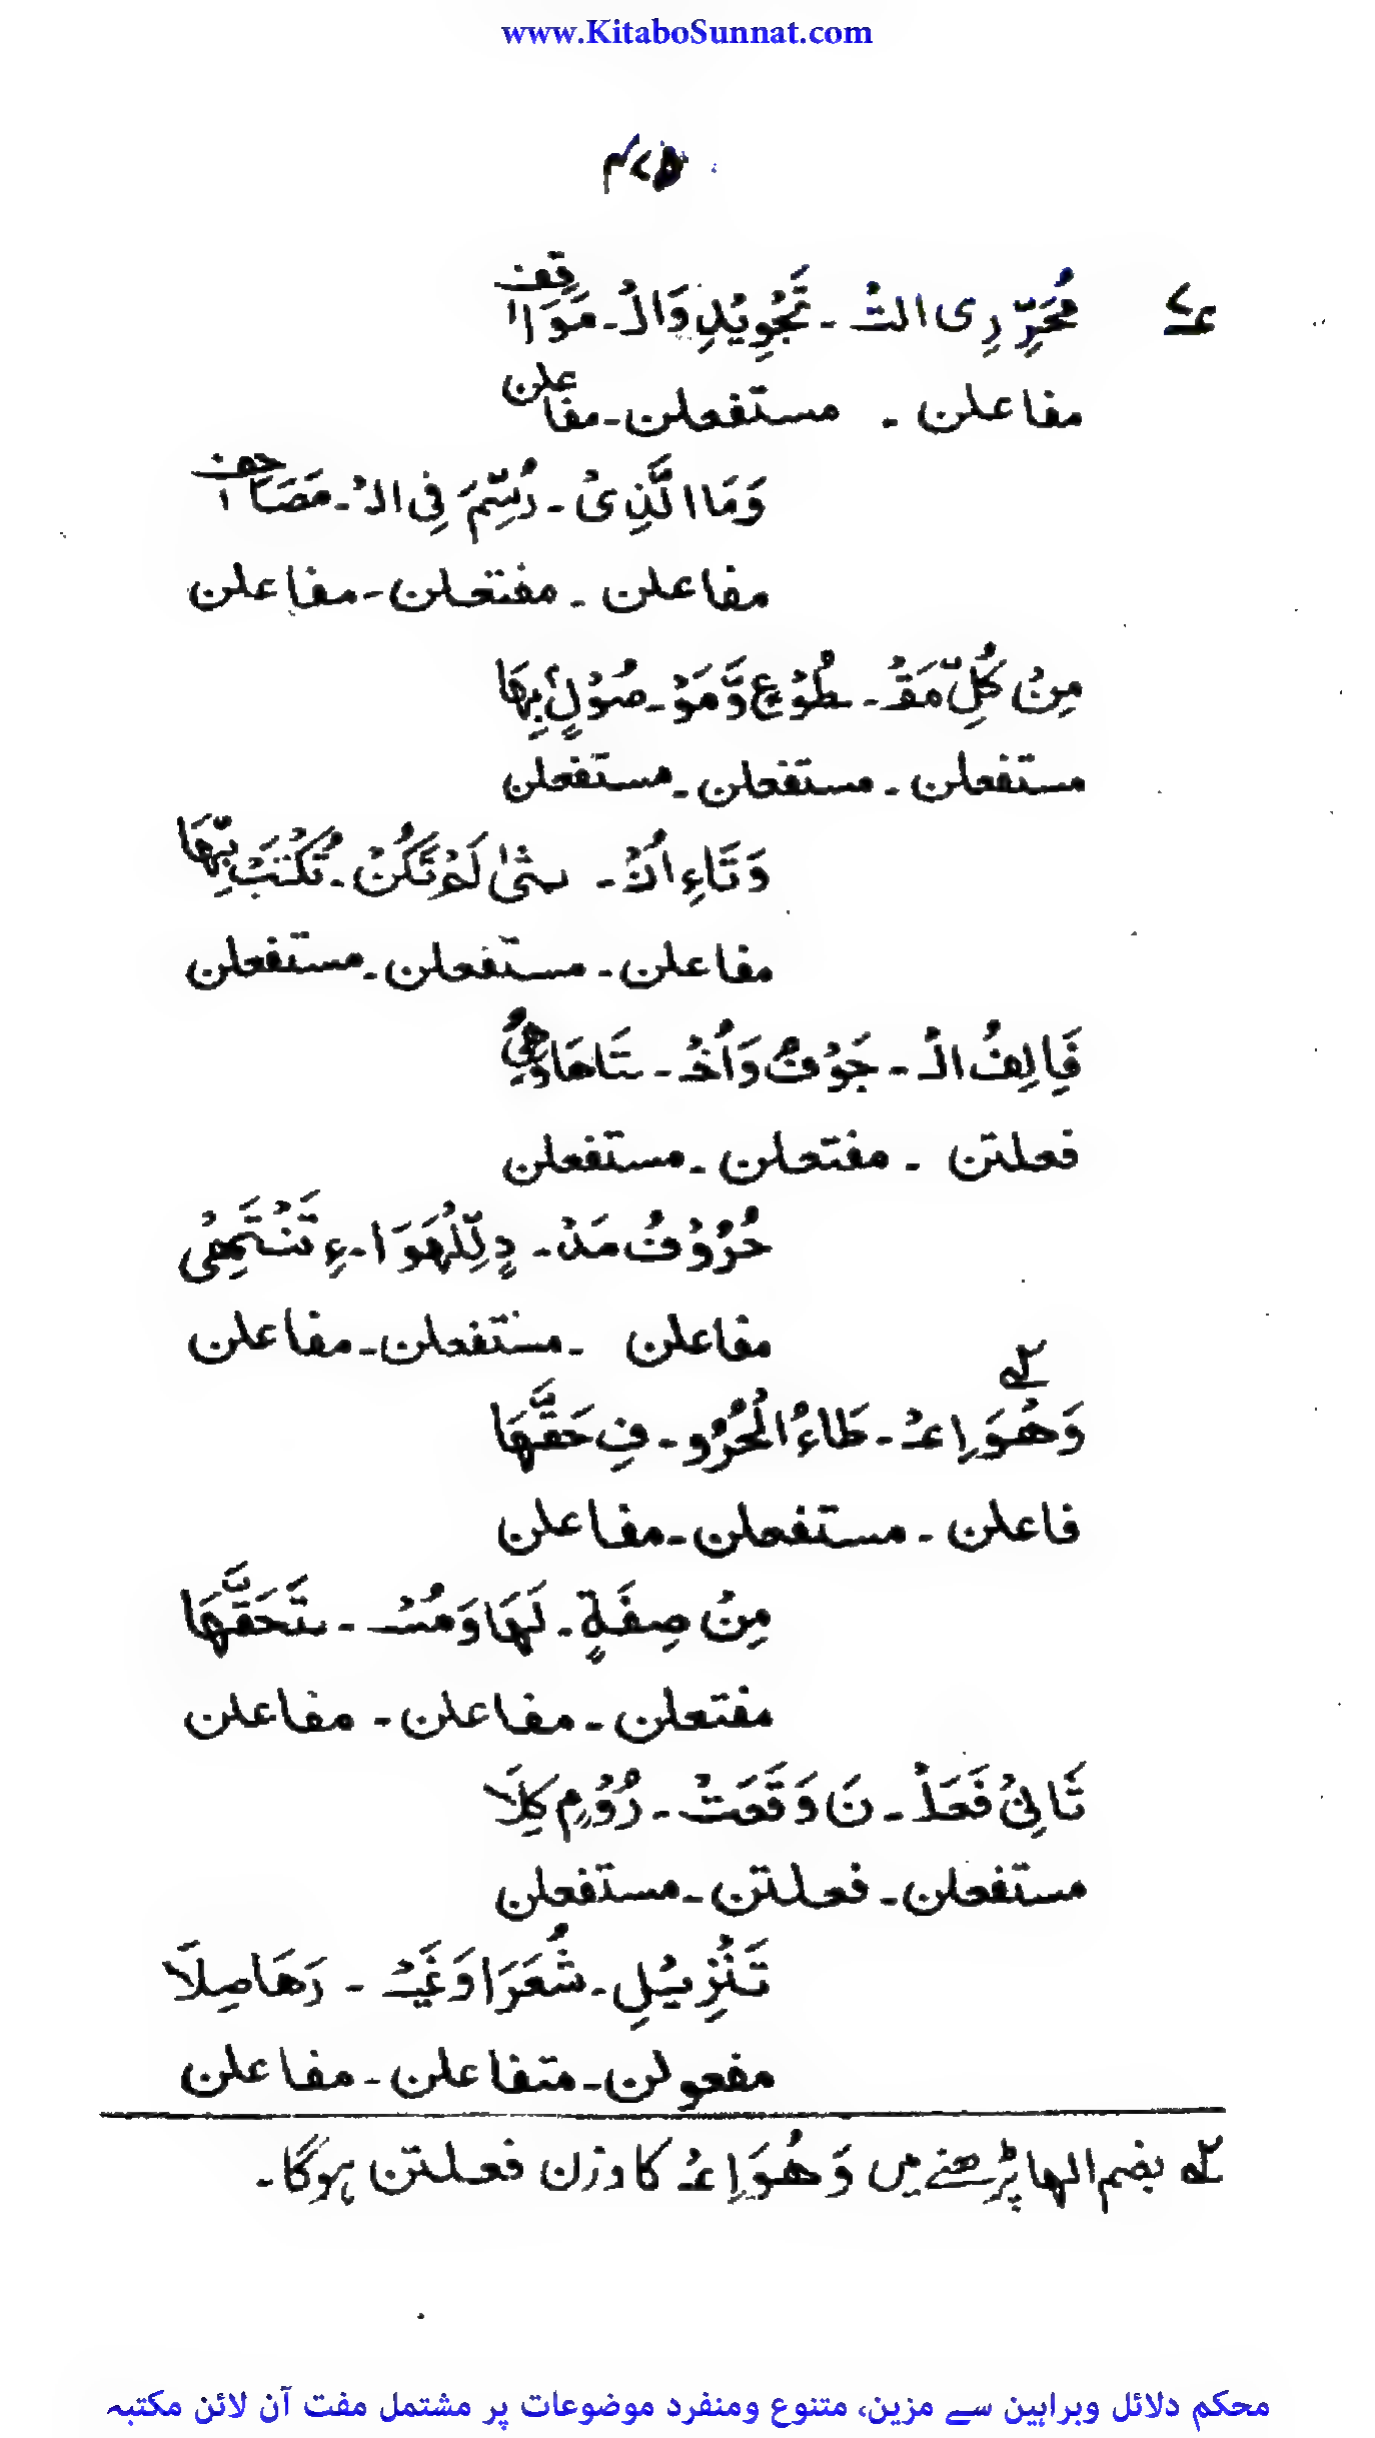 www.KitaboSunnat.com
ع۷ مُحَرِّرِی التْ ـ تَجْوِیْدِ وَالْ ـ مَوَاقِفْ
مفاعلن ـ مستفعلن ـ مفاعلن
وَمَا الَّذِیْ ـ رُسِّمَ فِی الْ ـ مَصَاحِفْ
مفاعلن ـ مفتعلن ـ مفاعلن
مِنْ کُلِّ مَقْ ـ طُوْعٍ وَّمَوْ ـ صُوْلٍ بِهَا
مستفعلن ـ مستفعلن ـ مستفعلن
وَتَاءِ اُنْ ـ ـثٰی لَمْ تَکُنْ ـ تُکْتَبْ بِّهَا
مفاعلن ـ مستفعلن ـ مستفعلن
فَاَلِفُ الْ ـ جَوْفُ وَاُخْ ـ تَاهَا وَهِیْ
فعلتن ـ مفتعلن ـ مستفعلن
حُرُوْفُ مَدْ ـ دٍ لِّلْهَوَا ـ ءِ تَنْتَهِیْ
مفاعلن ـ مستفعلن ـ مفاعلن
وَهْوَ اِعْ ـ طَاءُ الْحُرُو ـ فِ حَقَّهَا ۱ے
فاعلن ـ مستفعلن ـ مفاعلن
مِنْ صِفَةٍ ـ لَهَا وَمُسْ ـ تَحَقَّهَا
مفتعلن ـ مفاعلن ـ مفاعلن
ثَانِیْ فَعَلْ ـ نَ وَقَعَتْ ـ رُوْمِ کِلَا
مستفعلن ـ فعلتن ـ مستفعلن
تَنْزِیْلِ ـ شُعَرَا وَغَیْـ ـ رَهَا صِلَا
مفعولن ـ متفاعلن ـ مفاعلن
۱ے بضم الها پڑھنے میں وَهُوَ اِعْ کا وزن فعلتن ہوگا۔
محکم دلائل وبراہین سے مزین، متنوع ومنفرد موضوعات پر مشتمل مفت آن لائن مکتبہ